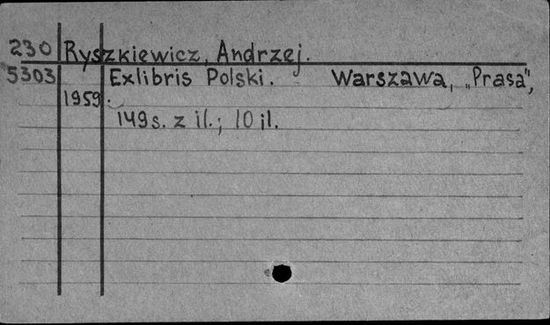 230 Ryszkiewicz, Andrzej.
5303 Exlibris Polski. Warszawa, „Prasa",
1959.
149 s. z il.; 10 il.